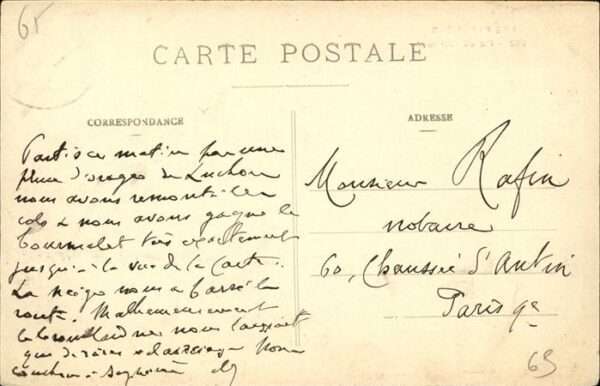 65
CARTE POSTALE
CORRESPONDANCE
ADRESSE
Partis ce matin par une
pluie d'orages de Luchon
nous avons remonté les
cols & nous avons gagné le
Tourmalet très exactement
jusqu'à la vue de la Carte.
La neige nous a barré la
route. Malheureusement
le brouillard ne nous laissait
que de rares
Monsieur Rafin
notaire
60, Chaussée d'Antin
Paris 9e
65